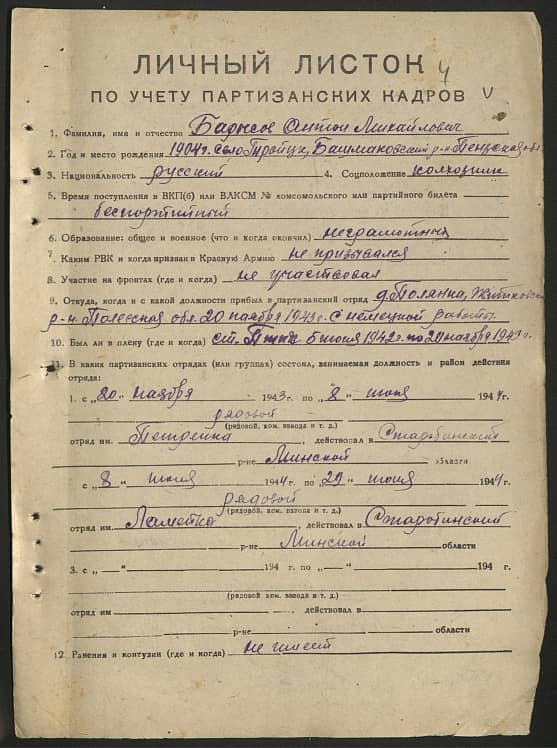 ЛИЧНЫЙ ЛИСТОК 4
ПО УЧЕТУ ПАРТИЗАНСКИХ КАДРОВ V
1. Фамилия, имя и отчество Антон Михайлович
2. Год и место рождения 1904г. село Тройцк, Башмаковский р-н Пензской обл.
3. Национальность русский 4. Соцположение колхозник
5. Время поступления в ВКП(б) или ВЛКСМ № комсомольского или партийного билета
беспартийный
6. Образование: общее и военное (что и когда окончил) неграмотный
7. Каким РВК и когда призван в Красную Армию не призывался
8. Участие на фронтах (где и когда) не участвовал
9. Откуда, когда и с какой должности прибыл в партизанский отряд д. Полянка,
р-н. Полесская обл. 20 ноября 1943г. с немецкой работы
10. Был ли в плену (где и когда) ст. 5 июня 1942г. по 20 ноября 1943г.
11. В каких партизанских отрядах (или группах) состоял, занимаемая должность и район действия
отряда:
1. с „20“ ноября 1943 г. по „8“ июня 1944 г.
рядовой
(рядовой, ком. взвода и т. д.)
отряд им. Петренка, действовал в Старобинский
р-не Минской области
с „8“ июня 1944 г. по „29“ июня 1944 г.
рядовой
(рядовой, ком. взвода и т. д.)
отряд им. , действовал в Старобинский
р-не Минской области
3. с „—“ 194 г. по „—“ 194 г.
(рядовой ком. взвода и т. д.)
отряд им. действовал в
р-не области
12. Ранения и контузии (где и когда) не имеет